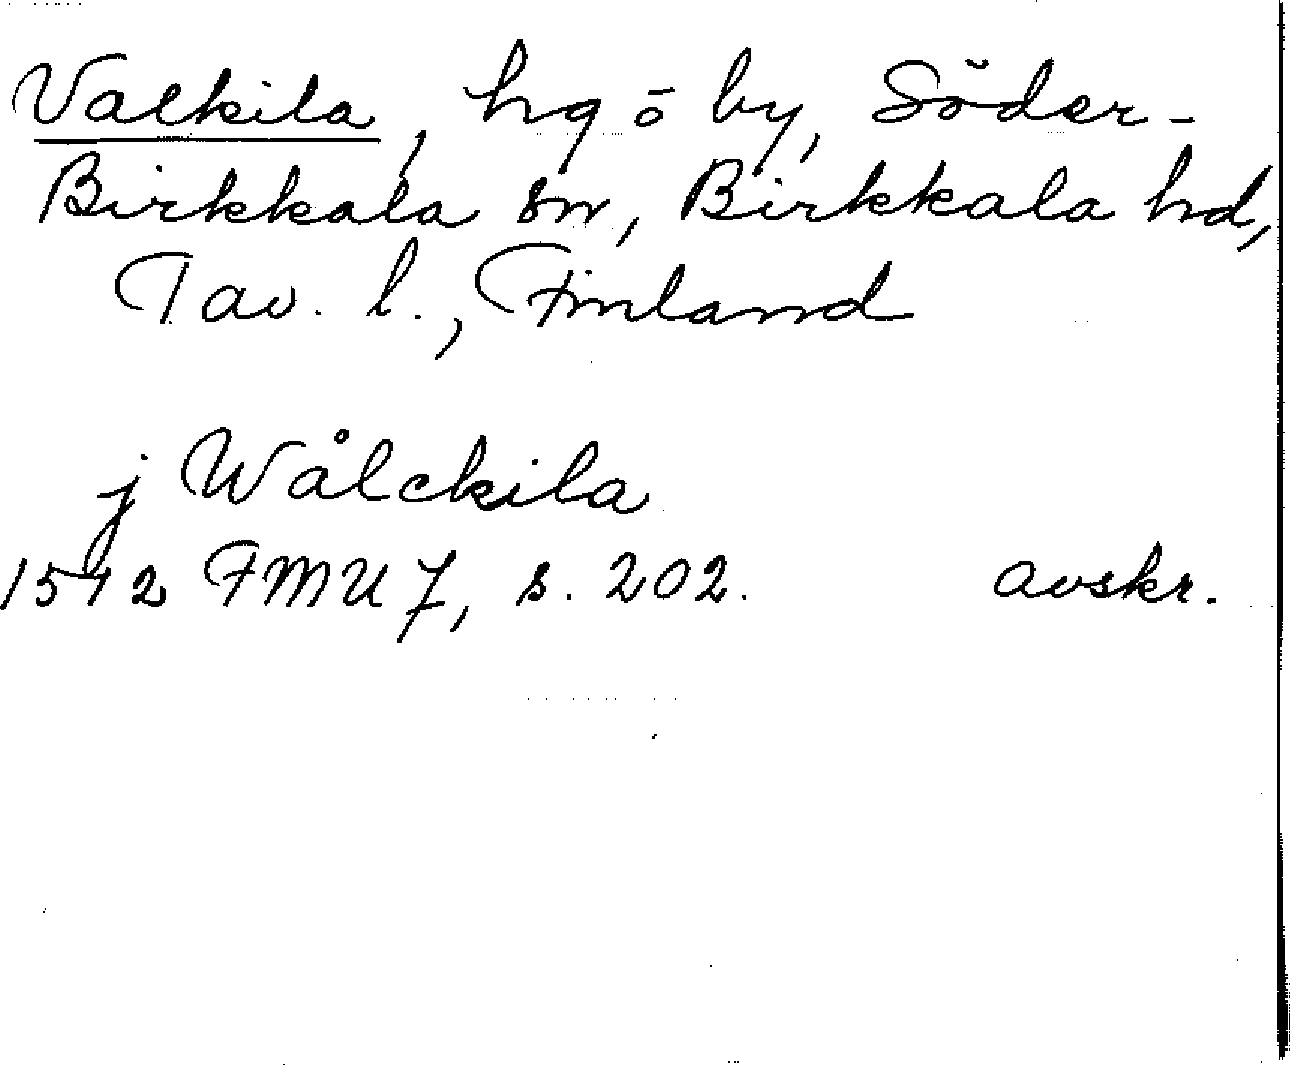 Valkila, hg o by, Söder-
Birkkala sn, Birkkala hd,
Tav. l., Finland
j Wålckila
1512 FMU 7, s. 202. avskr.